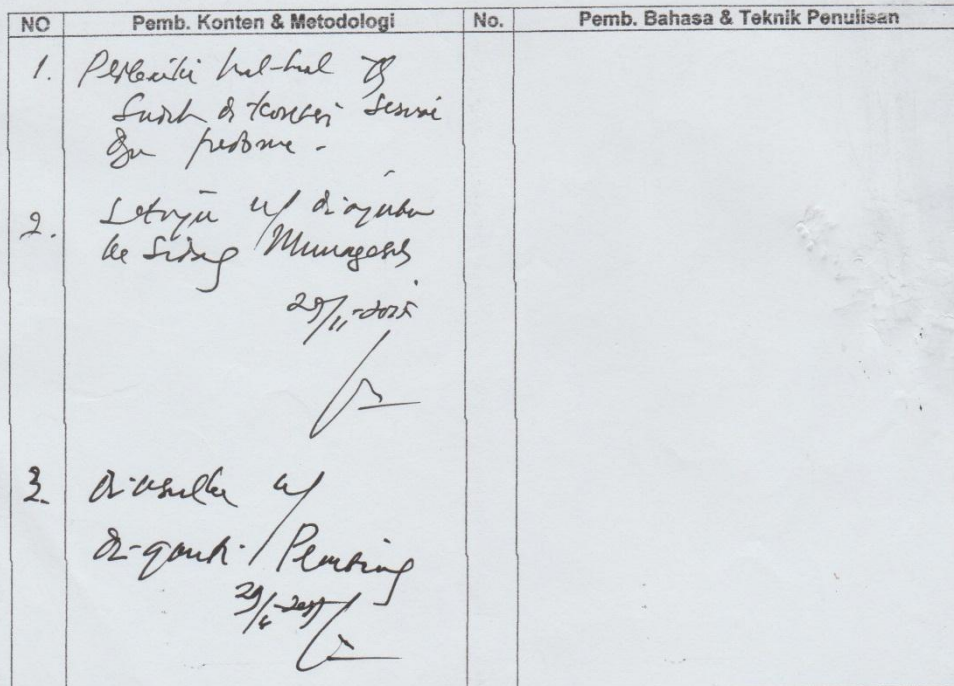 NO Pemb. Konten & Metodologi No. Pemb. Bahasa & Teknik Penulisan
1. Perbaiki hal-hal yg
Sudah di koreksi sesuai
dgn pedoman -
2. Setuju u/ diajukan
ke Sidang Munaqosah
29/11-2025
3. di-usulkan u/
di-ganti Pembimbing
29/